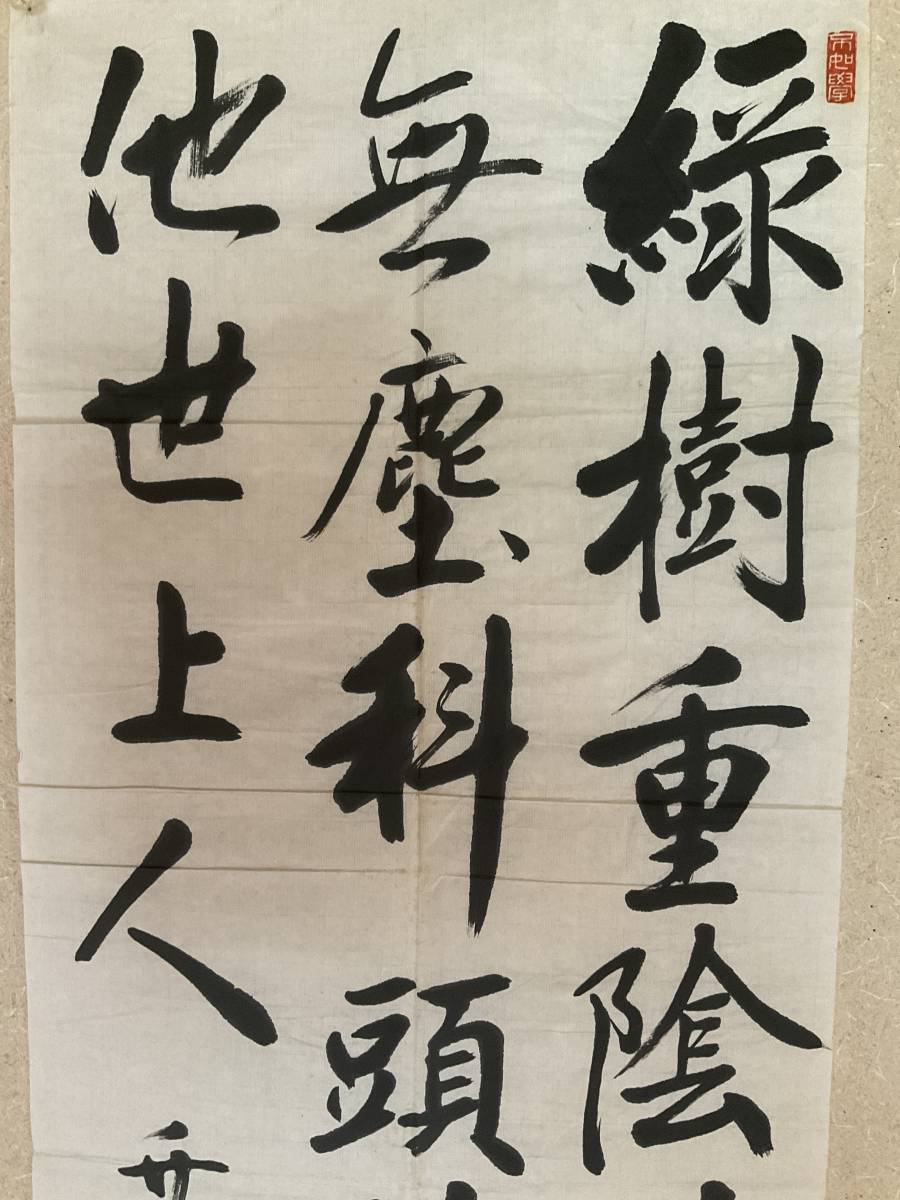 不如學
綠樹重陰
無塵科頭
他世上人